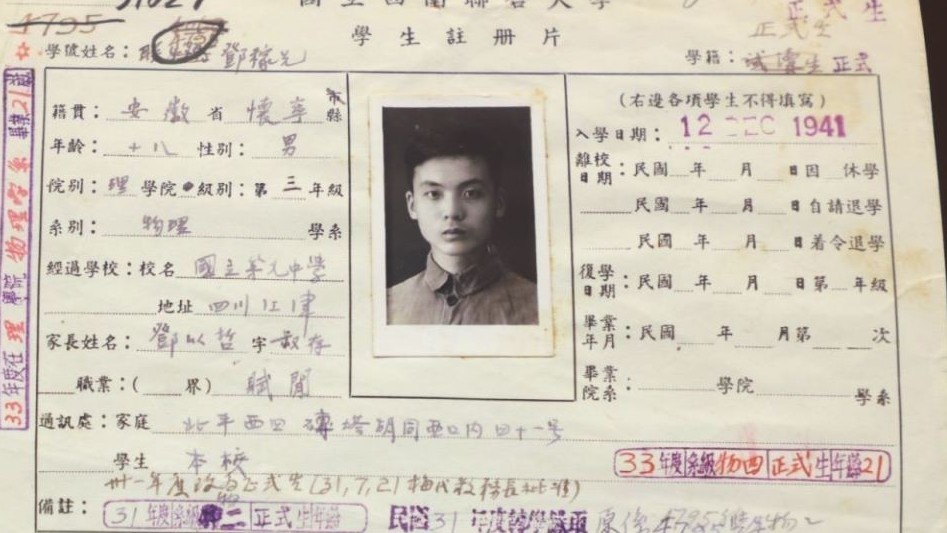 國立西南聯合大學
正式生
學生註册片
正式生
4795
學號姓名：聯 鄧稼先
學籍：試讀生 正式
籍貫：安徽省懷寧市縣
年齡：十八 性別：男
院別：理學院 級別：第三年級
系別：物理學系
經過學校：校名 國立第九中學
地址 四川江津
家長姓名：鄧以蟄 字叔存
職業：（ 界）賦閒
通訊處：家庭 北平西四磚塔胡同 內四十一號
學生 本校
卅一年度改為正式生(31,7,21 梅代教務長批准)
備註：31年度系級物二正式生年齡
民國31年度轉學 原係
(右邊各項學生不得填寫)
入學日期：12 DEC 1941
離校日期：民國 年 月 日因 休學
民國 年 月 日自請退學
民國 年 月 日着令退學
復學日期：民國 年 月 日第 年級
畢業年月：民國 年 月第 次
畢業院系： 學院 學系
33年度系級物四正式生年齡21
33年度在理學院物理學系畢業21歲